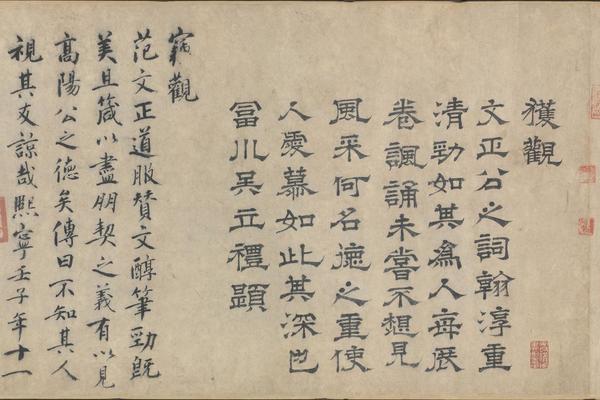 獲觀
文正公之詞翰淳重
清勁如其為人每展
卷諷誦未嘗不想見
風采何名德之重使
人愛慕如此其深也
冨川吴立禮題
竊觀
范文正道服贊文醇筆勁既
美且箴以盡朋契之義有以見
高陽公之德矣傳曰不知其人
視其友諒哉熙寧壬子年十一